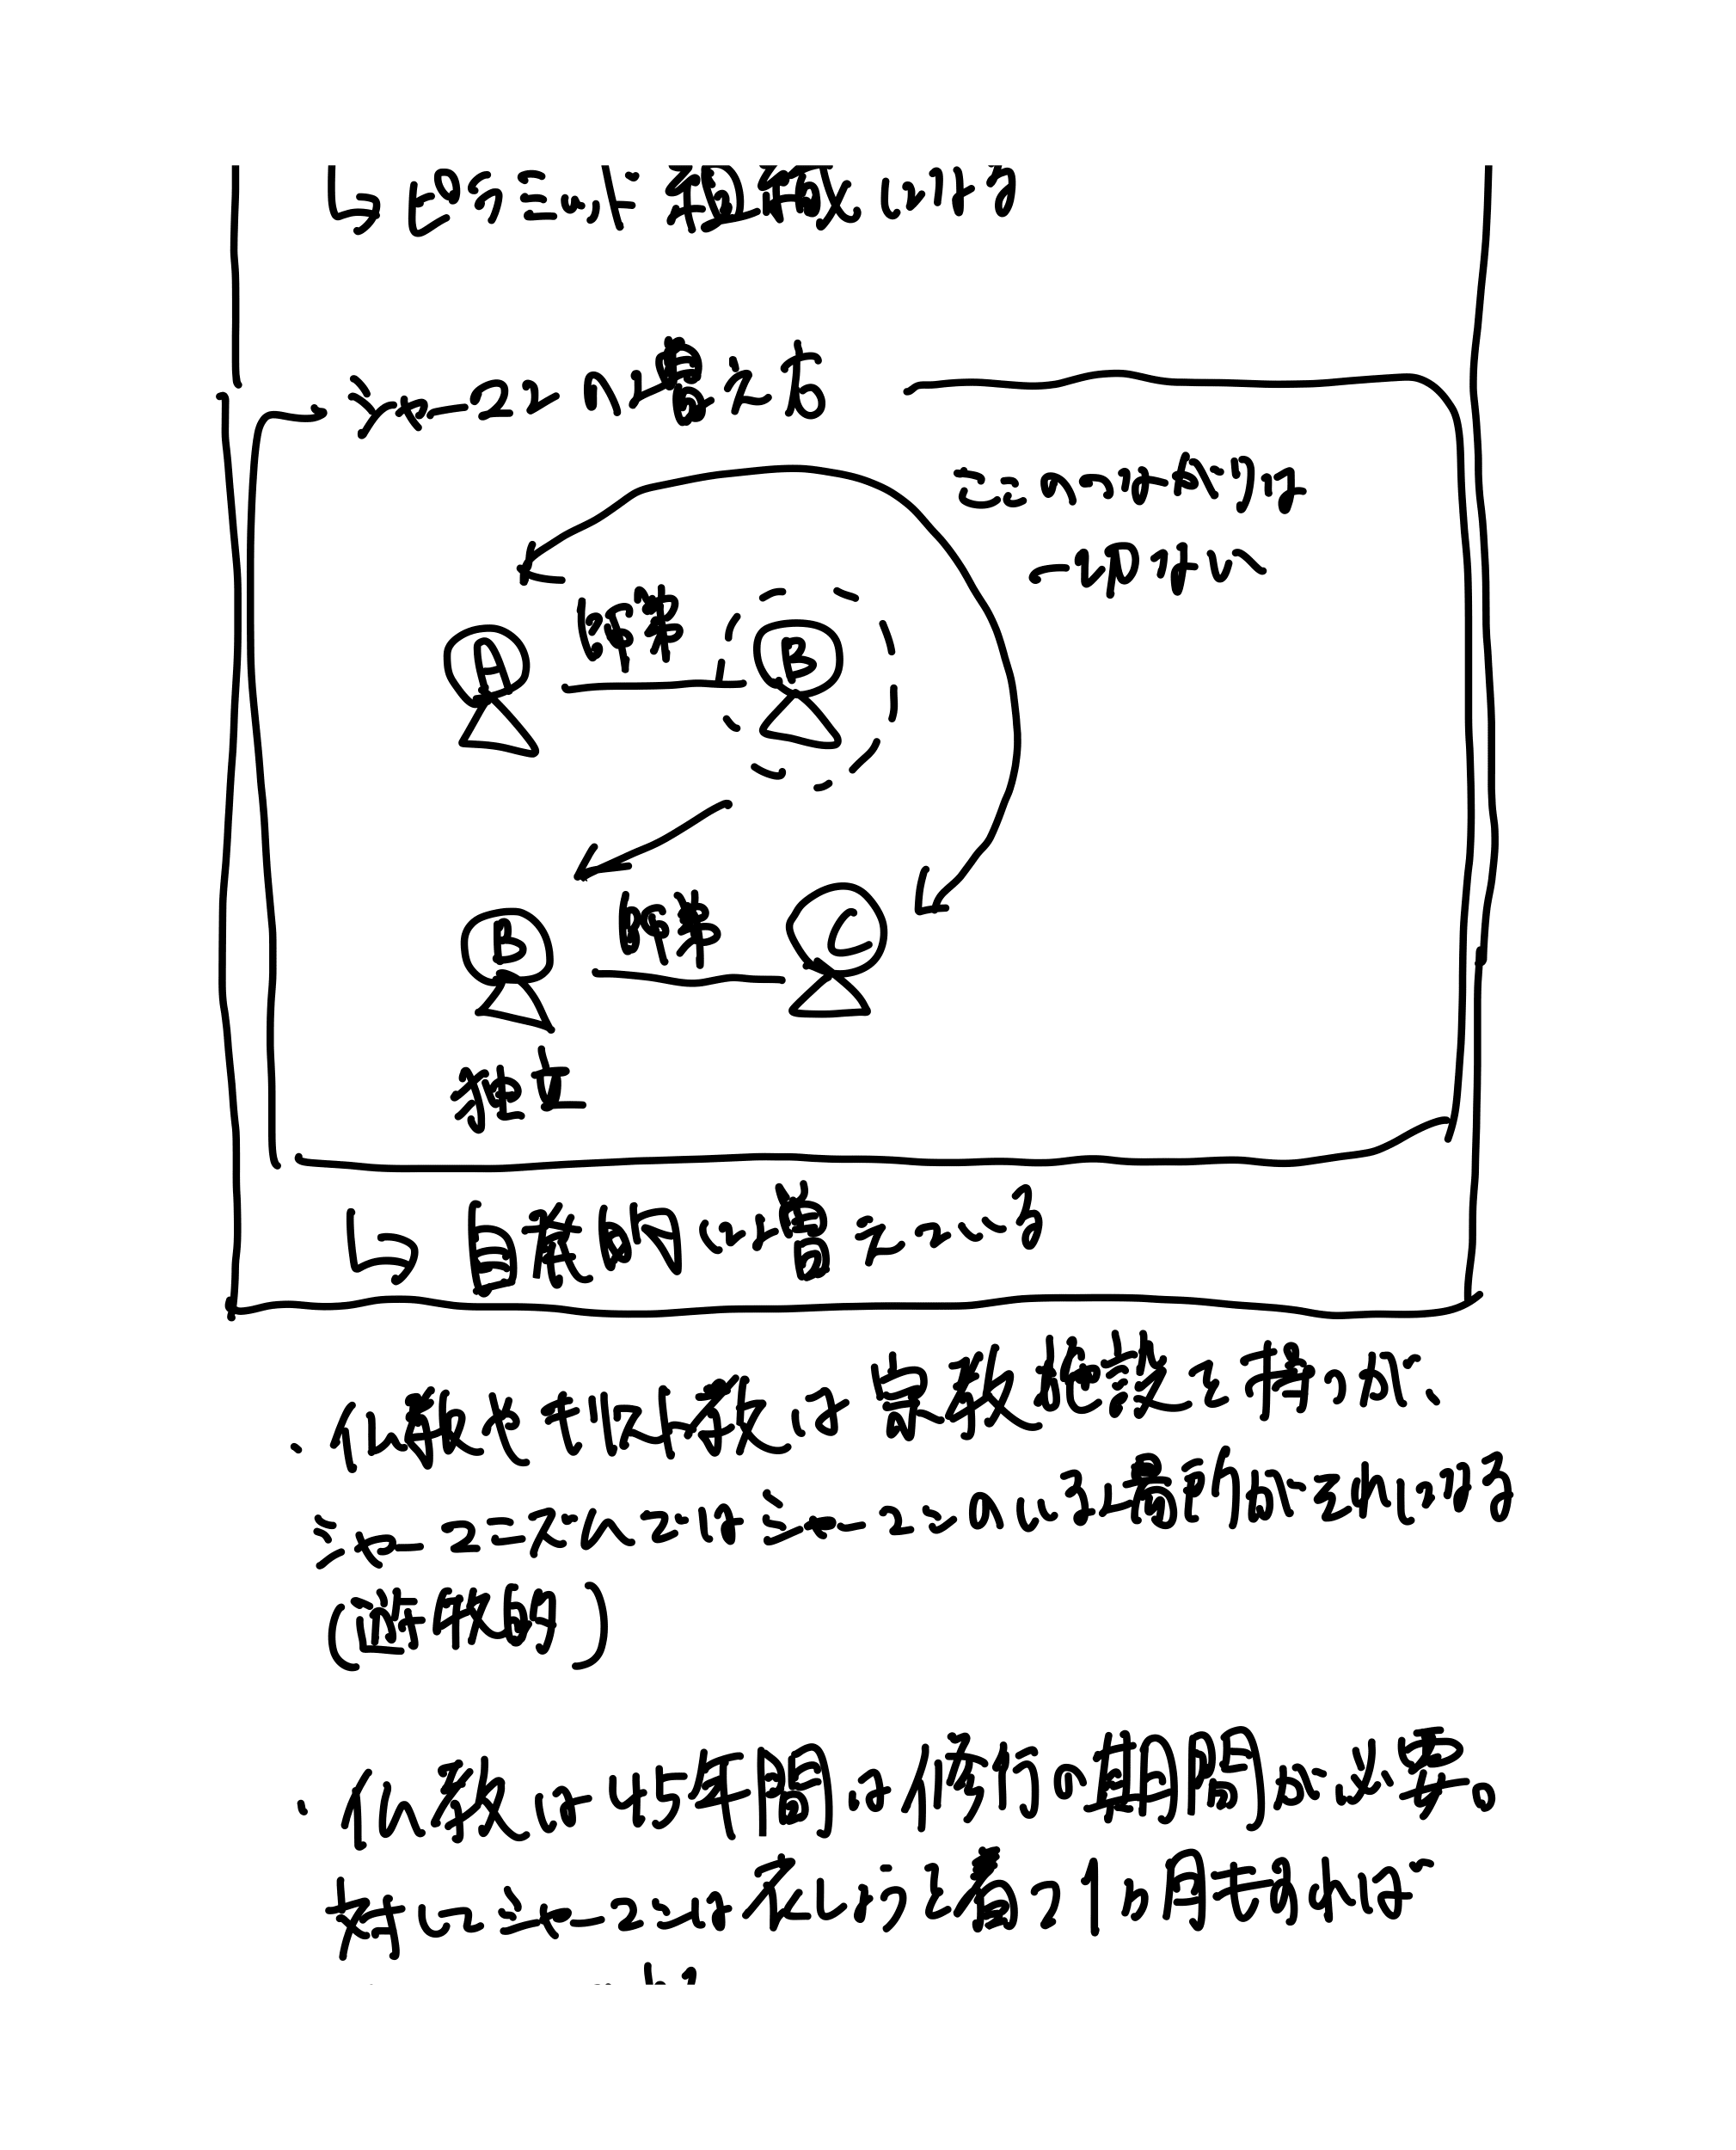 ↳ピラミッド組織になる
シャーマンの考え方
ここのつながりは
一切ない
A 師弟 B
B 師弟 C
独立
↳ 自然的に考えている
・仏教やキリスト教は宗教施設を持つが、
シャーマニズムではシャーマンのいる場所がそれになる
(遊牧的)
・仏教は45年間は修行の期間が必要。
対してシャーマンは衣しょうを着て1ヵ月もあれば